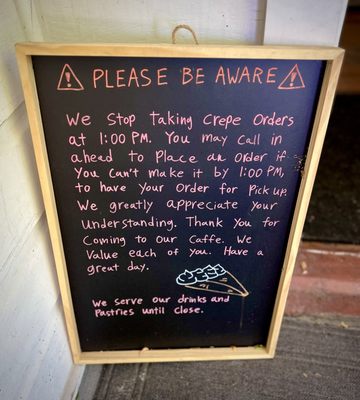 PLEASE BE AWARE
We Stop Taking Crepe Orders
at 1:00 PM. You may Call in
ahead to Place an Order if
You Can't make it by 1:00 PM,
to have Your Order for Pick up.
We greatly appreciate your
Understanding. Thank You for
Coming to our Caffe. We
Value each of you. Have a
great day.
We serve our drinks and
Pastries until close.